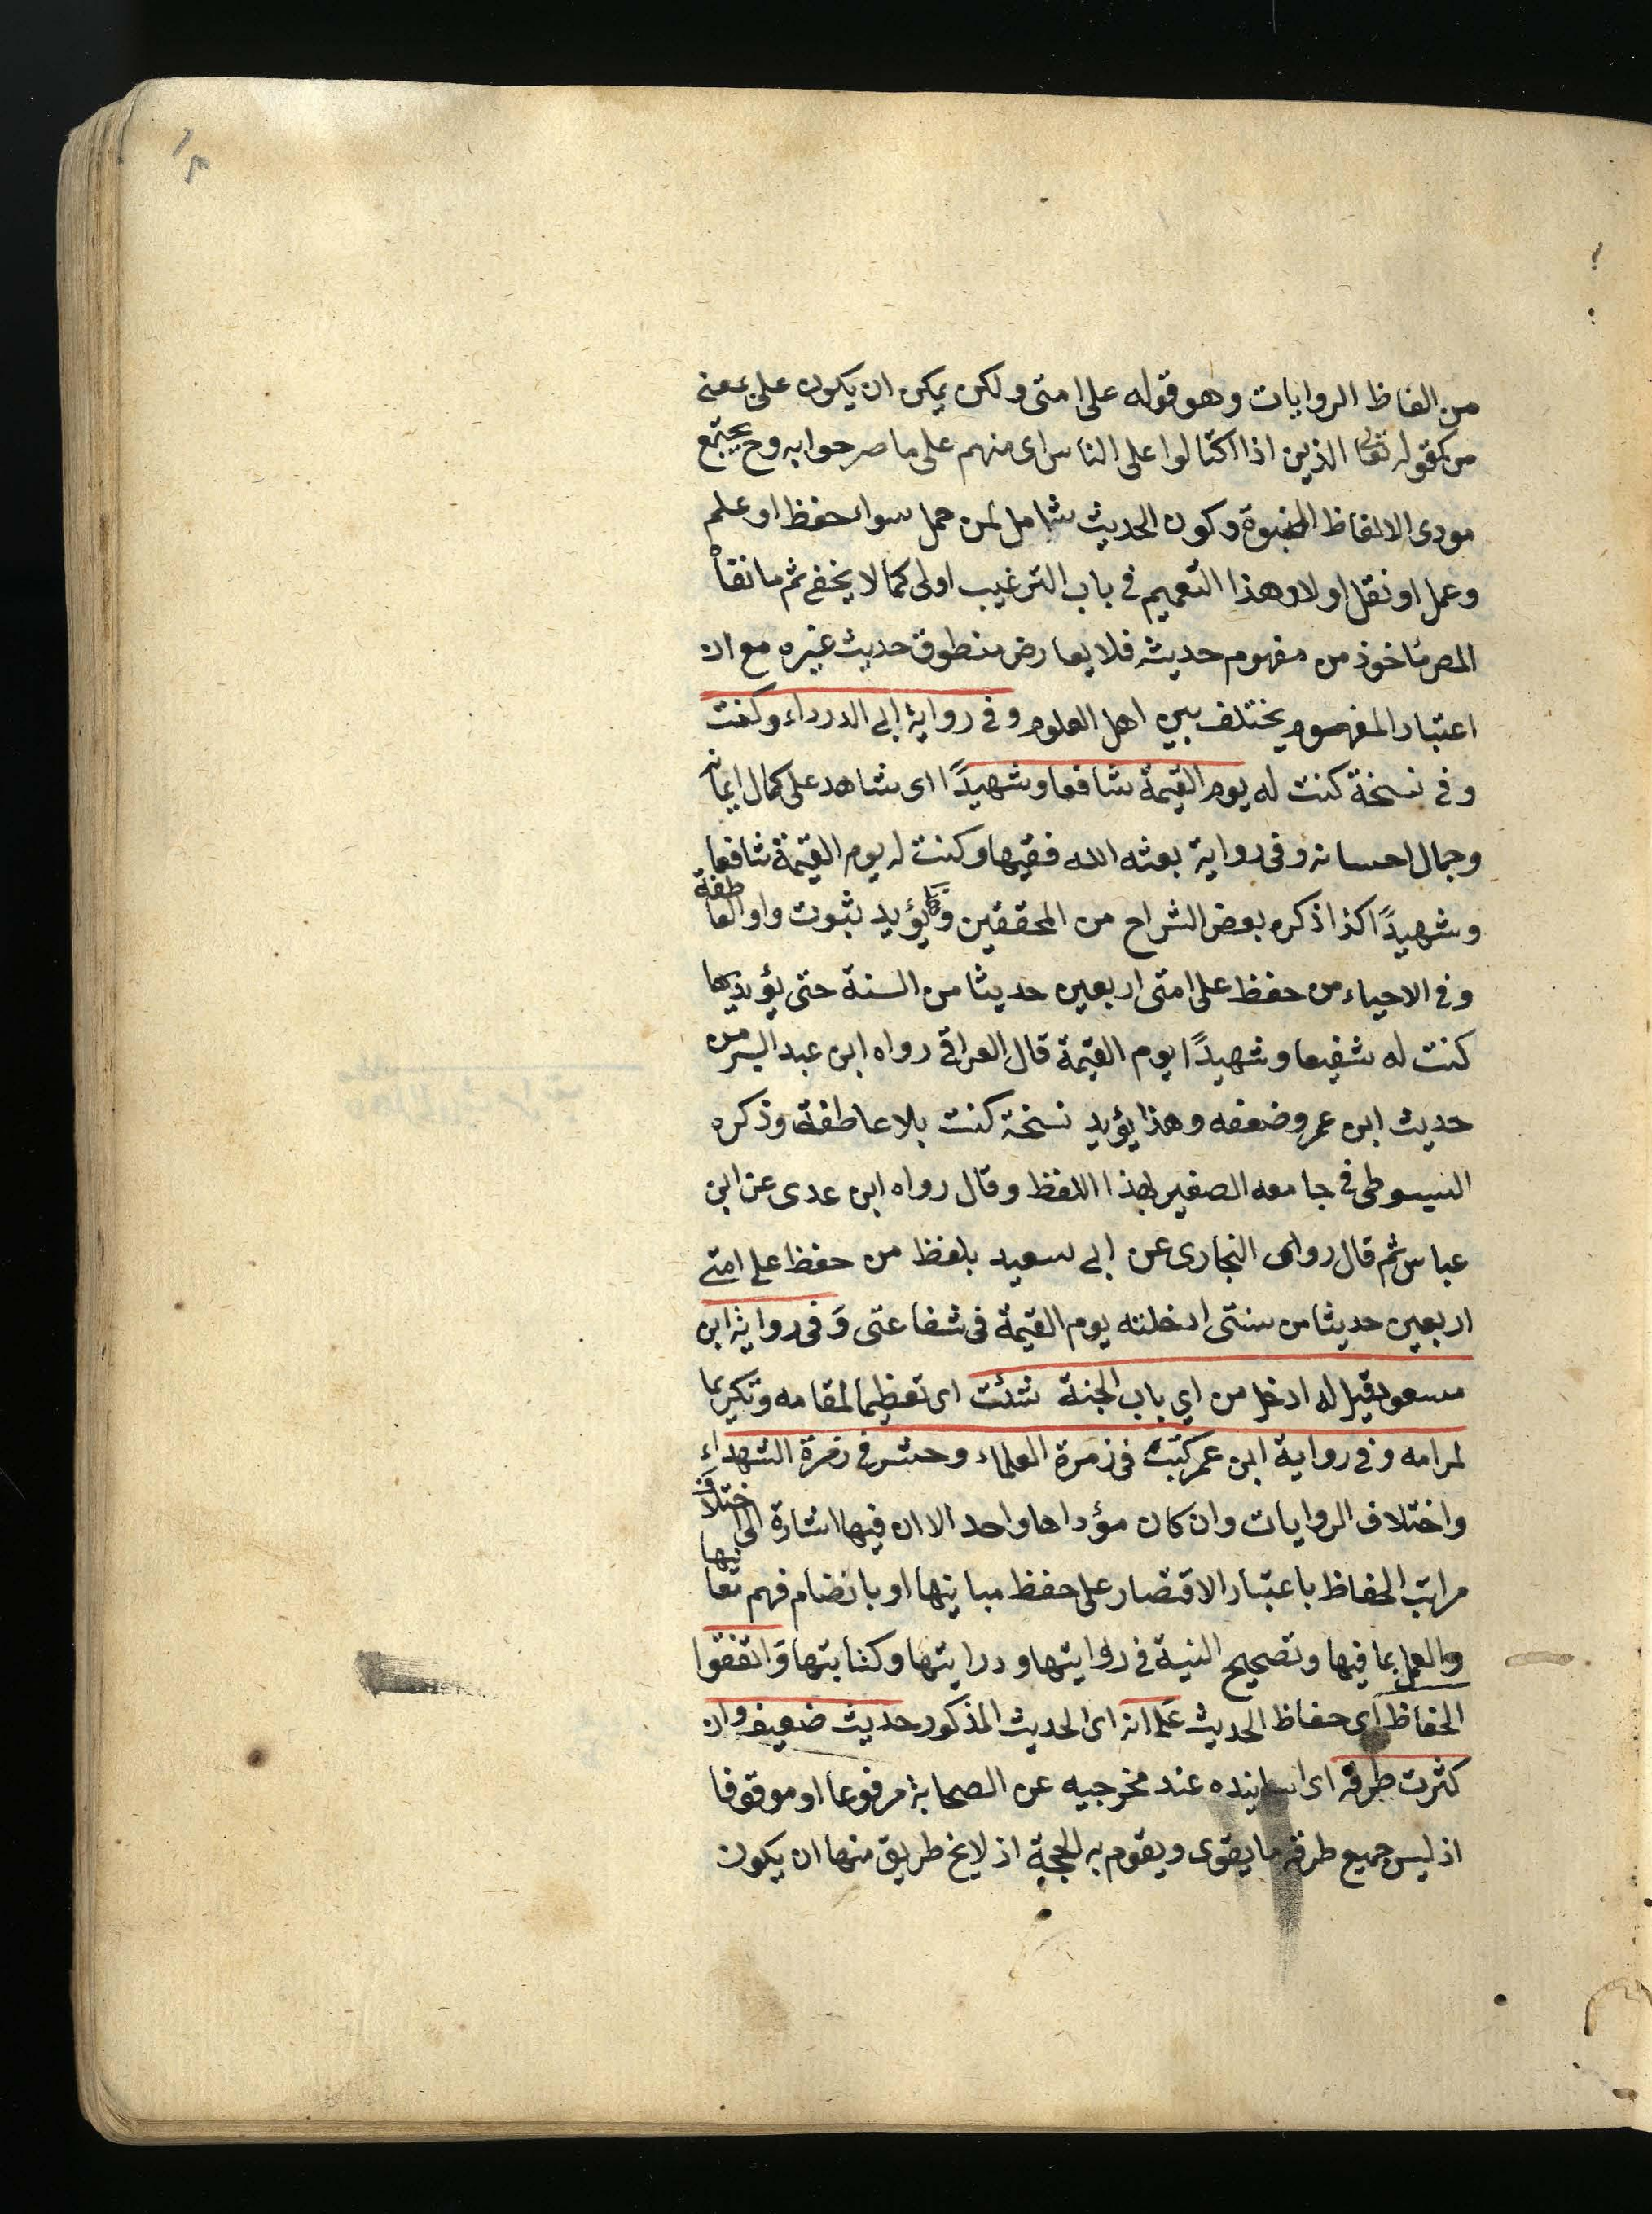 من الفاظ الروايات وهو قوله على امتى ولكن يمكن ان يكون على بمعنى
من كقوله تعالى الذين اذا اكتالوا على الناس اى منهم على ما صرحوا به وح يجتمع
مودى الالفاظ النبوة وكون الحديث شامل لمن حمل سواء حفظ او علم
وعمل او نقل اولا وهذا التعميم فى باب الترغيب اولى كما لا يخفى ثم ما نقله
المصر ماخوذ من مفهوم حديثه فلا يعارض منطوق حديث غيره مع ان
اعتبار المفهوم يختلف بين اهل العلوم وفى رواية ابى الدرداء وكنت
وفى نسخة كنت له يوم القيمة شافعا وشهيدًا اى شاهد على كمال ايمانه
وجمال احسانه وفى رواية بعثه الله فقيها وكنت له يوم القيمة شافعا
وشهيدًا كذا ذكره بعض الشراح من المحققين وبه يؤيد ثبوت واو العاطفة
وفى الاحياء من حفظ على امتى اربعين حديثا من السنة حتى يؤديها
كنت له شفيعا وشهيدًا يوم القيمة قال العراقى رواه ابن عبد البر من
حديث ابن عمر وضعفه وهذا يؤيد نسخة كنت بلا عاطفة وذكره
السيوطى فى جامعه الصغير بهذا اللفظ وقال رواه ابن عدى عن ابن
عباس ثم قال رواه النجارى عن ابى سعيد بلفظ من حفظ على امتى
اربعين حديثا من سنتى ادخلته يوم القيمة فى شفاعتى وَفى رواية ابن
مسعود قيل له ادخل من اي باب الجنة شئت اى تعظيما لمقامه وتكريما
لمرامه وفى رواية ابن عمر كتب فى زمرة العلماء وحشر فى زمرة الشهداء
واختلاف الروايات وان كان مؤداها واحد الا ان فيها اشارة الى اختلاف
مراتب الحفاظ باعتبار الاقتصار على حفظ مبانيها او بانضام فهم معانيها
والعمل بما فيها وتصحيح النية فى روايتها ودرايتها وكتابتها وَاتفقوا
الحفاظ اى حفاظ الحديث على انه اى الحديث المذكور حديث ضعيف وان
كثرت طرقه اى اسانيده عند مخرجيه عن الصحابة مرفوعا او موقوفا
اذ ليس جميع طرقه ما يقوى ويقوم به الحجة اذ لا يخ طريق منها ان يكون